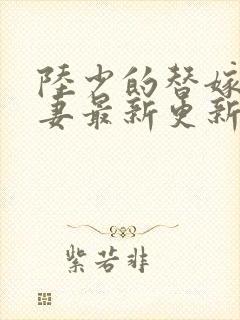 陸少的替嫁
妻最新更新
紫若非